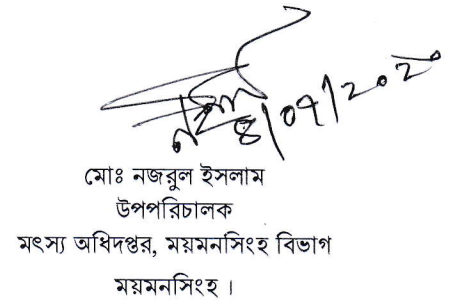 ৪/০৭/২০২০
মোঃ নজরুল ইসলাম
উপপরিচালক
মৎস্য অধিদপ্তর, ময়মনসিংহ বিভাগ
ময়মনসিংহ ।